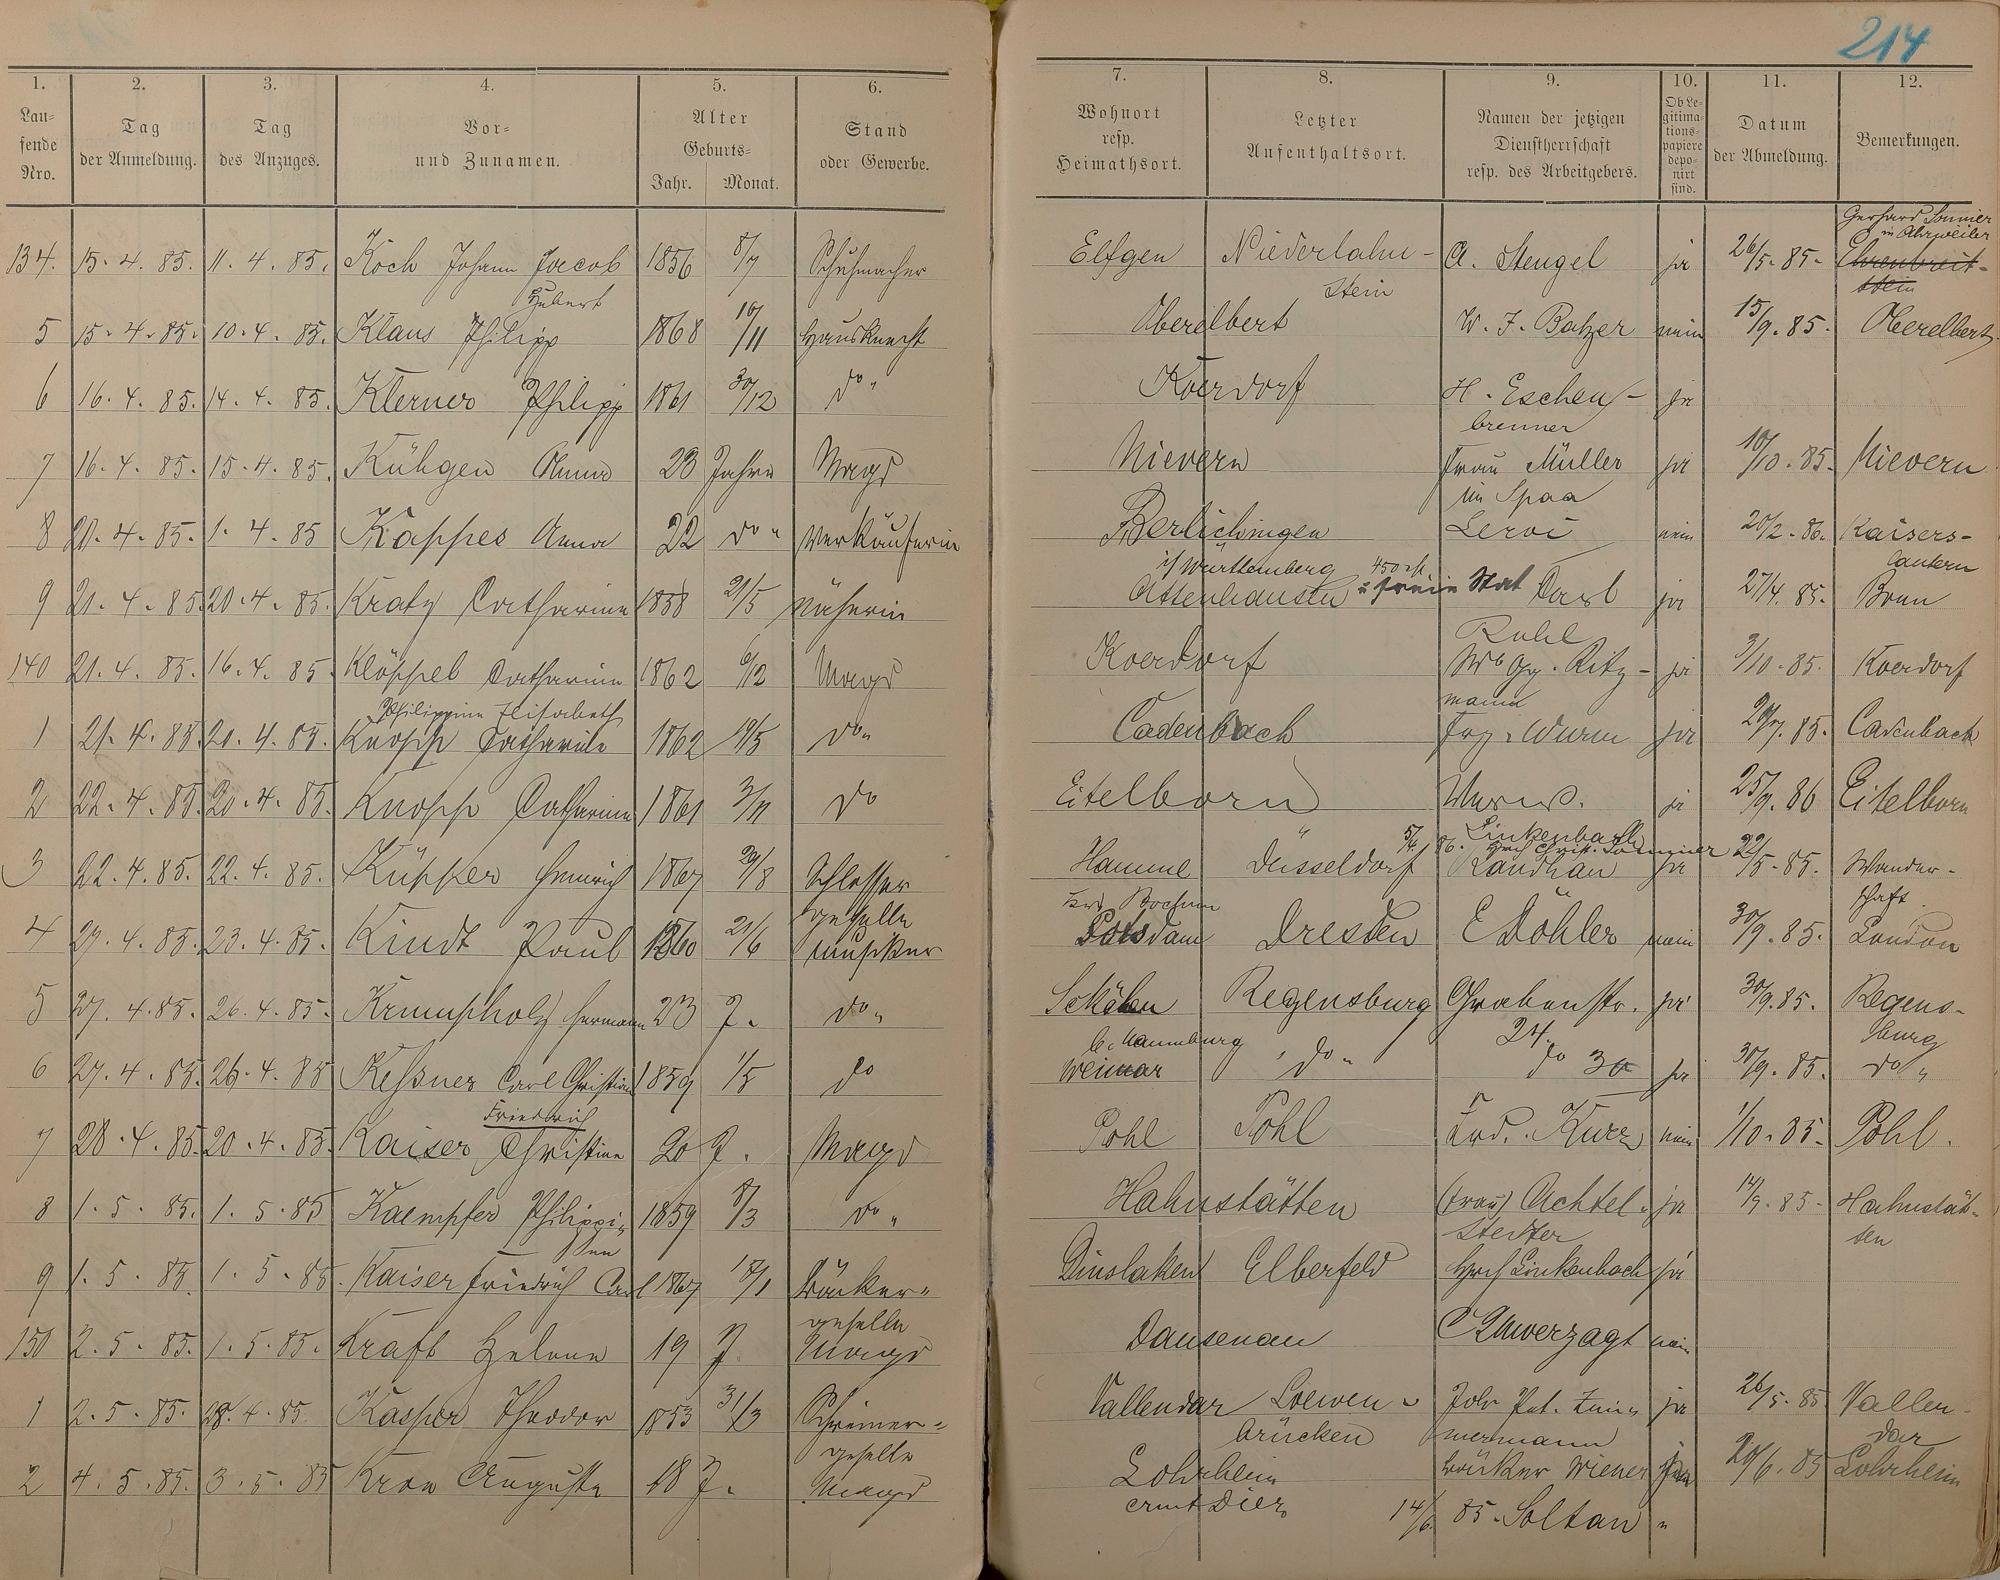 214
1. 2. 3. 4. 5. 6. 7. 8. 9. 10. 11. 12.
Laufende Nro.
Tag der Anmeldung.
Tag des Anzuges.
Vor- und Zunamen.
Alter
Geburts-
Jahr. Monat.
Stand oder Gewerbe.
Wohnort resp. Heimathsort.
Letzter Aufenthaltsort.
Namen der jetzigen Dienstherrschaft resp. des Arbeitgebers.
Ob Legitimationspapiere deponirt sind.
Datum der Abmeldung.
Bemerkungen.
Gerhard Sonnier
in Ahrweiler
134. 15. 4. 85. 11. 4. 85. Koch Johann Jacob 1856 8/7 Schuhmacher Elfgen Niederlahn- A. Stengel ja 26/5. 85. Ehrenbreit-
Hubert stein stein
5 15. 4. 85. 10. 4. 85. Klaus Philipp 1868 10/11 Hausknecht Oberelbert W. F. Balzer nein 15/9. 85. Oberelbert
6 16. 4. 85. 14. 4. 85. Klerner Philipp 1861 30/12 do " Koerdorf H. Eschen- ja
brenner
7 16. 4. 85. 15. 4. 85. Kühgen Anna 23 Jahre Magd Nievern Frau Müller ja 10/10. 85. Nievern
im Spaa
8 20. 4. 85. 1. 4. 85 Kappes Anna 22 do " Verkäuferin Berlichingen Leroi nein 20/2. 86. Kaisers-
i/ Württemberg 450 lautern
9 21. 4. 85. 20. 4. 85. Kratz Catharine 1858 21/5 Näherin Attenhausen freie Stat Carl ja 27/4. 85. Bonn
Ruhl
140 21. 4. 85. 16. 4. 85 Klöppel Catharine 1862 6/12 Magd Koerdorf Ww Gg. Ritz- ja 3/10. 85. Koerdorf
Philippine Elisabeth mann
1 21. 4. 85. 20. 4. 85. Knopp Catharine 1862 19/5 do " Cadenbach Wurm ja 29/7. 85. Cadenbach
2 22. 4. 85. 20. 4. 85. Knopp Catharine 1861 3/11 do Eitelborn ja 25/9. 86 Eitelborn
5/4. 86. Linkenbach
3 22. 4. 85. 22. 4. 85. Küpper Heinrich 1867 29/8 Schlosser Hamme Düsseldorf ja 22/5. 85. Wander-
geselle Bochum schaft.
4 27. 4. 85. 23. 4. 85. Kindt Paul 1860 21/6 Musiker Potsdam Dresden E Döhler nein 30/9. 85. London
5 27. 4. 85. 26. 4. 85. Krumpholz Hermann 23 J. do " Schölen Regensburg Grabenstr. ja 30/9. 85. Regens-
b. Naumburg 24. burg
6 27. 4. 85. 26. 4. 85 Keßner Carl Christian 1859 1/5 do Weimar do " do 30 ja 30/9. 85. do "
Friedrich
7 28. 4. 85. 20. 4. 85. Kaiser Christine 20 J. Magd Pohl Pohl Frd. Kurz nein 1/10. 85. Pohl.
8 1. 5. 85. 1. 5. 85 Kaempfer Philippi- 1859 8/3 do " Hahnstätten (Frau) Achtel- ja 14/9. 85. Hahnstät-
stetter ten
9 1. 5. 85. 1. 5. 85. Kaiser Friedrich Carl 1867 18/1 Bäcker- Dinslaken Elberfeld Hrch Linkenbach ja
geselle
150 2. 5. 85. 1. 5. 85. Kraft Helene 19 J Magd Dausenau C Unverzagt nein
1 2. 5. 85. 28. 4. 85. Kasper Theodor 1853 31/3 Schreiner- Vallendar Loewen- Joh. Pet. Zim- ja 26/5. 85 Vallen-
geselle brücken mermann dar
2 4. 5. 85. 3. 5. 85 Kron Auguste 18 J. Magd Lohrheim Bäcker Wiener 20/6. 85 Lohrheim
Amt Diez 14/6. 85. Soltan "